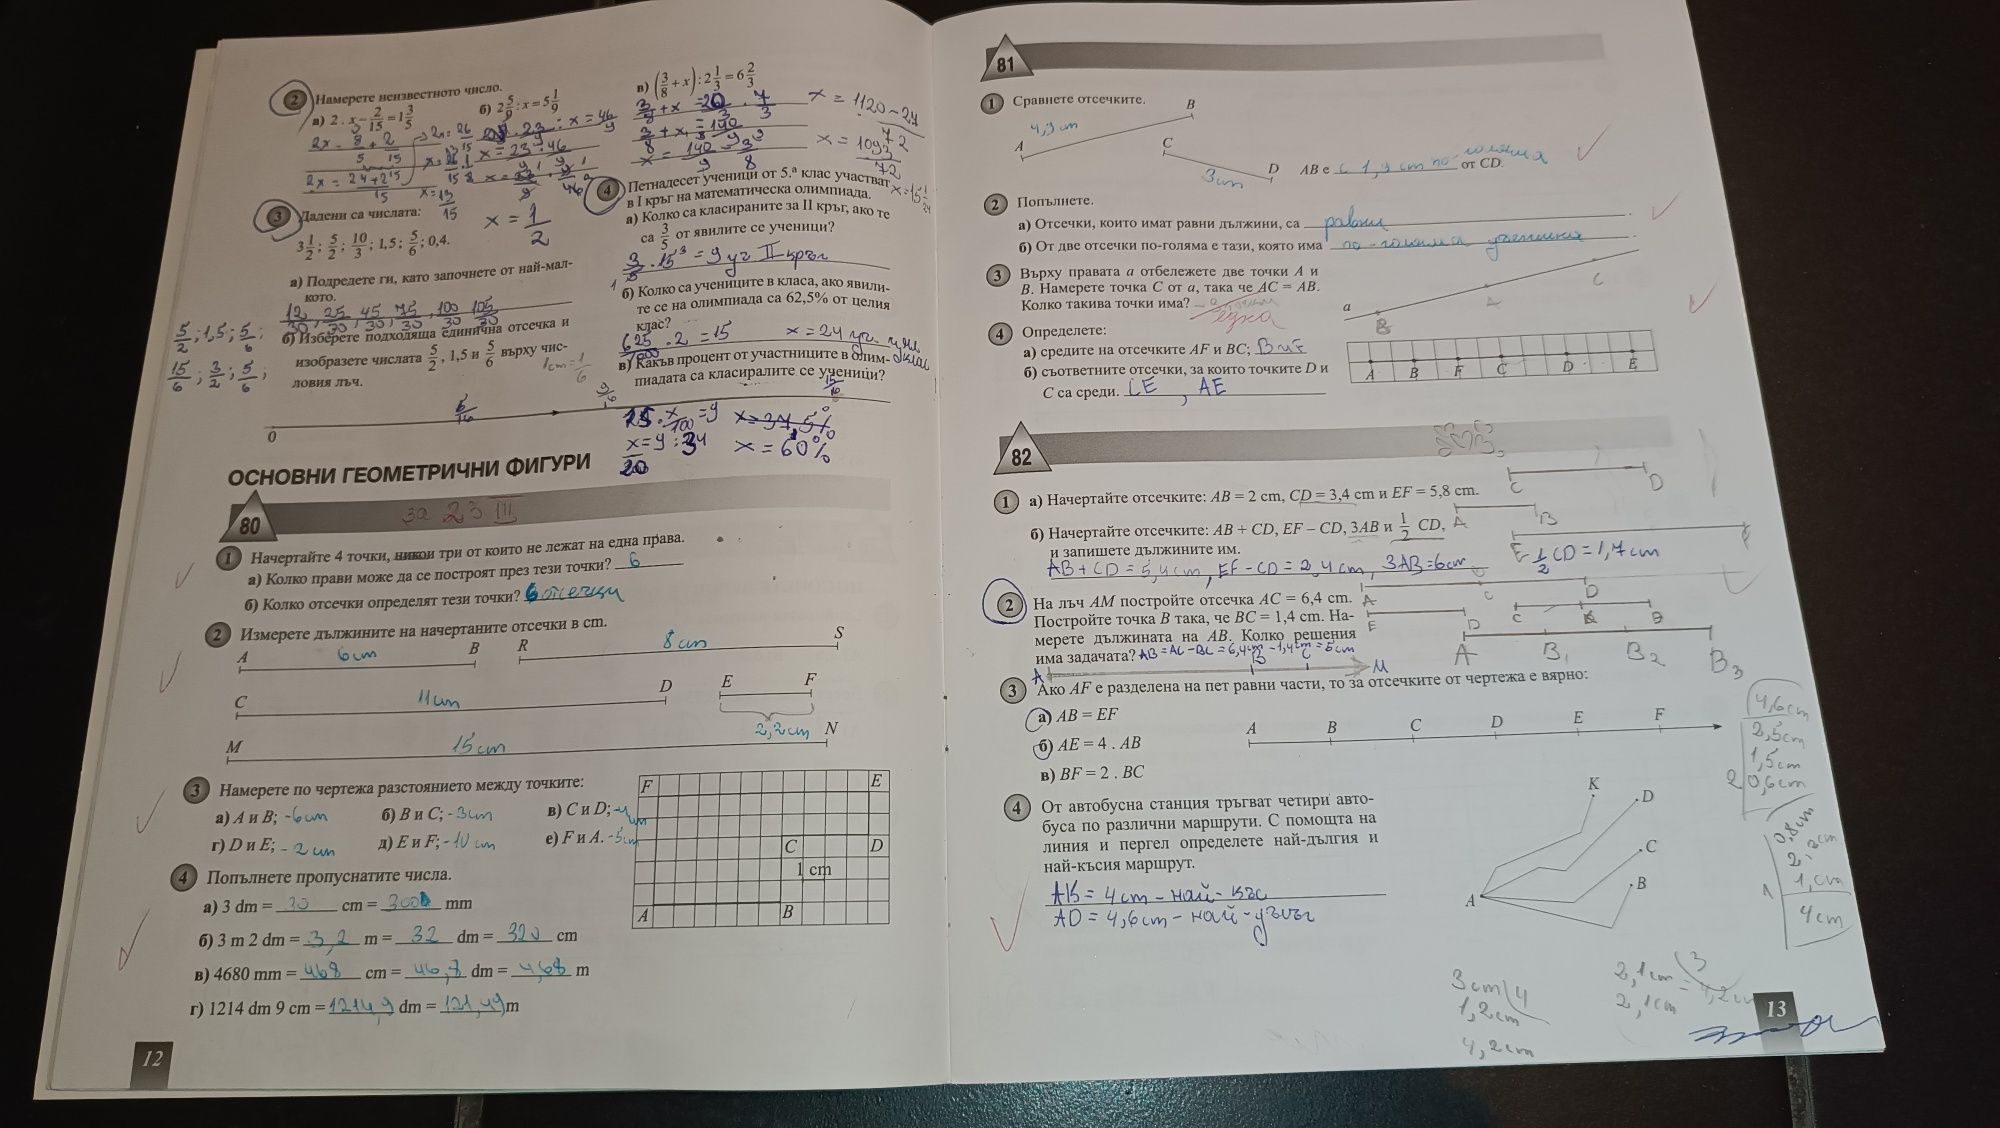 2 Намерете неизвестното число.
а) 2 . x − 2/15 = 1 3/5
б) 2 5/9 : x = 5 1/9
x = 1/2
3 Дадени са числата:
3 1/2; 5/2; 10/3; 1,5; 5/6; 0,4.
а) Подредете ги, като започнете от най-мал-
кото.
12/30, 25/30, 45/30, 75/30, 100/30, 105/30
5/2; 1,5; 5/6;
15/6; 3/2; 5/6;
б) Изберете подходяща единична отсечка и
изобразете числата 5/2, 1,5 и 5/6 върху чис-
ловия лъч.
1cm = 1/6
0
в) (3/8 + x) : 2 1/3 = 6 2/3
x = 1120 − 27
72
x = 1093
72
4 Петнадесет ученици от 5.ª клас участват
в I кръг на математическа олимпиада.
а) Колко са класираните за II кръг, ако те
са 3/5 от явилите се ученици?
3/5 . 15³ = 9 уч II кръг
б) Колко са учениците в класа, ако явили-
те се на олимпиада са 62,5% от целия
клас?
x = 24 уч.
в) Какъв процент от участниците в олим-
пиадата са класиралите се ученици?
x = 37,5%
x = 60%
ОСНОВНИ ГЕОМЕТРИЧНИ ФИГУРИ
80
за 23 III
1 Начертайте 4 точки, никои три от които не лежат на една права.
а) Колко прави може да се построят през тези точки? 6
б) Колко отсечки определят тези точки? 6 отсечки
2 Измерете дължините на начертаните отсечки в cm.
A 6cm B R 8cm S
C 11cm D E F
2,2cm
M 15cm N
3 Намерете по чертежа разстоянието между точките:
а) A и B; -6cm б) B и C; -3cm в) C и D; -4cm
г) D и E; -2cm д) E и F; -10cm е) F и A. -5cm
F E
C D
1 cm
A B
4 Попълнете пропуснатите числа.
а) 3 dm = 30 cm = 300 mm
б) 3 m 2 dm = 3,2 m = 32 dm = 320 cm
в) 4680 mm = 468 cm = 46,8 dm = 4,68 m
г) 1214 dm 9 cm = 1214,9 dm = 121,49 m
12
81
1 Сравнете отсечките.
A 4,9cm B
C 3cm D
AB е с 1,9 cm по-голяма от CD.
2 Попълнете.
а) Отсечки, които имат равни дължини, са равни.
б) От две отсечки по-голяма е тази, която има по-голяма дължина.
3 Върху правата a отбележете две точки A и
B. Намерете точка C от a, така че AC = AB.
Колко такива точки има? една
a B A C
4 Определете:
а) средите на отсечките AF и BC; B и F
б) съответните отсечки, за които точките D и
C са среди. CE, AE
A B F C D E
82
1 а) Начертайте отсечките: AB = 2 cm, CD = 3,4 cm и EF = 5,8 cm.
б) Начертайте отсечките: AB + CD, EF − CD, 3AB и 1/2 CD,
и запишете дължините им.
AB + CD = 5,4cm, EF − CD = 2,4cm, 3AB = 6cm
1/2 CD = 1,7cm
C D
A B
2 На лъч AM постройте отсечка AC = 6,4 cm.
Постройте точка B така, че BC = 1,4 cm. На-
мерете дължината на AB. Колко решения
има задачата? AB = AC − BC = 6,4cm − 1,4cm = 5cm
A B C M
A B₁ B₂ B₃
3 Ако AF е разделена на пет равни части, то за отсечките от чертежа е вярно:
а) AB = EF
б) AE = 4 . AB
в) BF = 2 . BC
A B C D E F
4 От автобусна станция тръгват четири авто-
буса по различни маршрути. С помощта на
линия и пергел определете най-дългия и
най-късия маршрут.
AB = 4cm - най-къс
AD = 4,6cm - най-дълъг
K
D
C
B
A
4,6cm
2,5cm
1,5cm
0,6cm
0,8cm
4cm
3cm
1,2cm
4,2cm
2,1cm
2,1cm
13